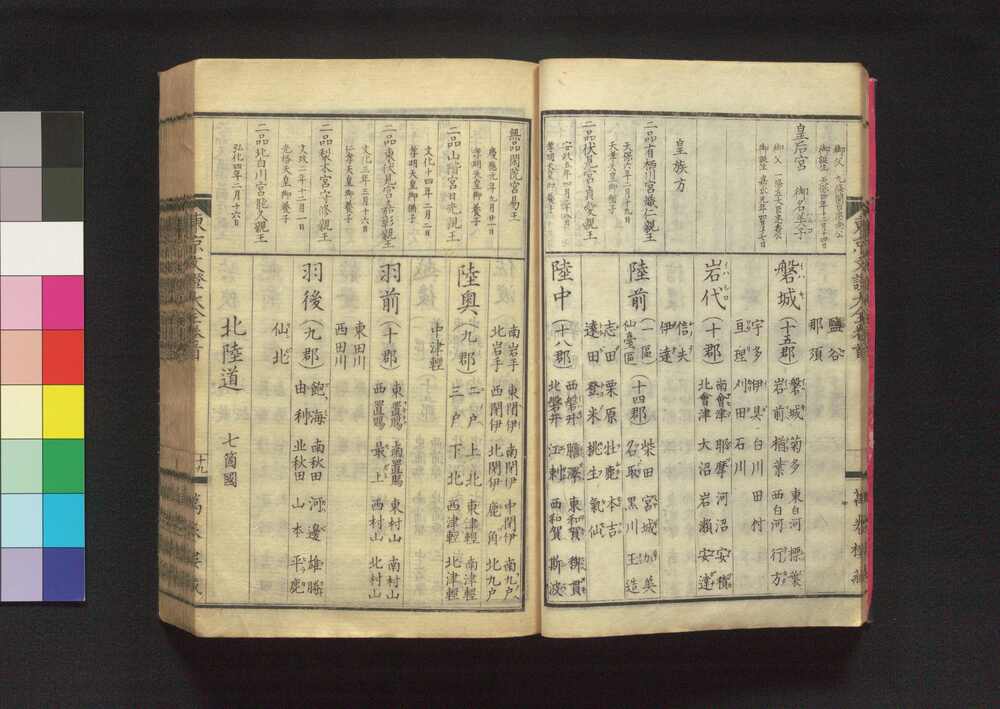 御父 九條關白尚忠公
御誕生 天保四年十二月十四日
皇后宮 御名美子
御父 一條左大臣忠香公
御誕生 嘉永元年四月十七日
皇族方
二品有栖川宮幟仁親王
天保六年二月十九日
二品伏見宮貞愛親王
安政五年四月廿四日
孝明天皇御養子
鹽谷
那須
磐城(十五郡)
磐城 菊多 東白河 標葉
岩前 楢葉 西白河 行方
宇多 伊具 白川 田付
亘理 刈田 石川
岩代(十郡)
南會津 耶摩 河沼 安積
北會津 大沼 岩瀬 安達
信夫
伊達
陸前(一區)(十四郡)
仙臺區
柴田 宮城 加美
名取 黒川 玉造
志田 栗原 牡鹿 本吉
遠田 登米 桃生 氣仙
陸中(十八郡)
西磐井 膽澤 東和賀 稗貫
北磐井 江刺 西和賀 斯波
無品閑院宮易王
慶應元年九月廿一日
孝明天皇御養子
二品山階宮日光親王
文化十四年二月二日
孝明天皇御猶子
二品東伏見宮嘉彰親王
文化三年三月十六日
仁孝天皇御養子
二品梨本宮守脩親王
文政二年十二月一日
光格天皇御養子
二品北白川宮能久親王
弘化四年二月十六日
南岩手 東閉伊 南閉伊 中閉伊 南九戸
北岩手 西閉伊 北閉伊 鹿角 北九戸
陸奥(九郡)
二戸 上北 東津輕 南津輕
三戸 下北 西津輕 北津輕
中津輕
羽前(十郡)
東置賜 南置賜 東村山 南村山
西置賜 最上 西村山 北村山
東田川
西田川
羽後(九郡)
飽海 南秋田 河邊 雄勝
由利 北秋田 山本 平鹿
仙北
北陸道 七箇國
十九